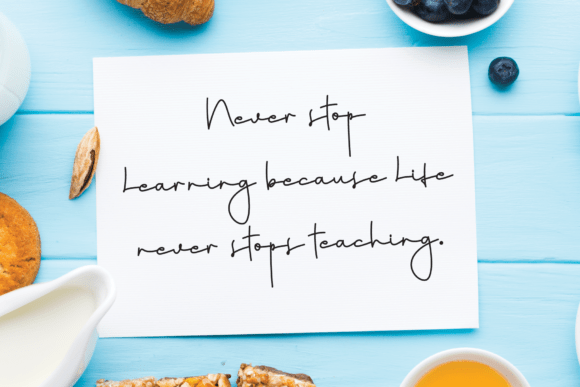 Never stop
Learning because Life
never stops teaching.